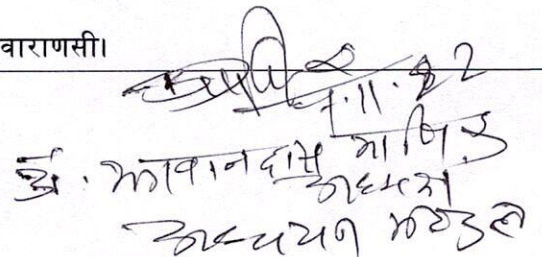 वाराणसी।
7.11.82
डॉ. भगवानदास माहौर
अध्यक्ष
अध्ययन मण्डल